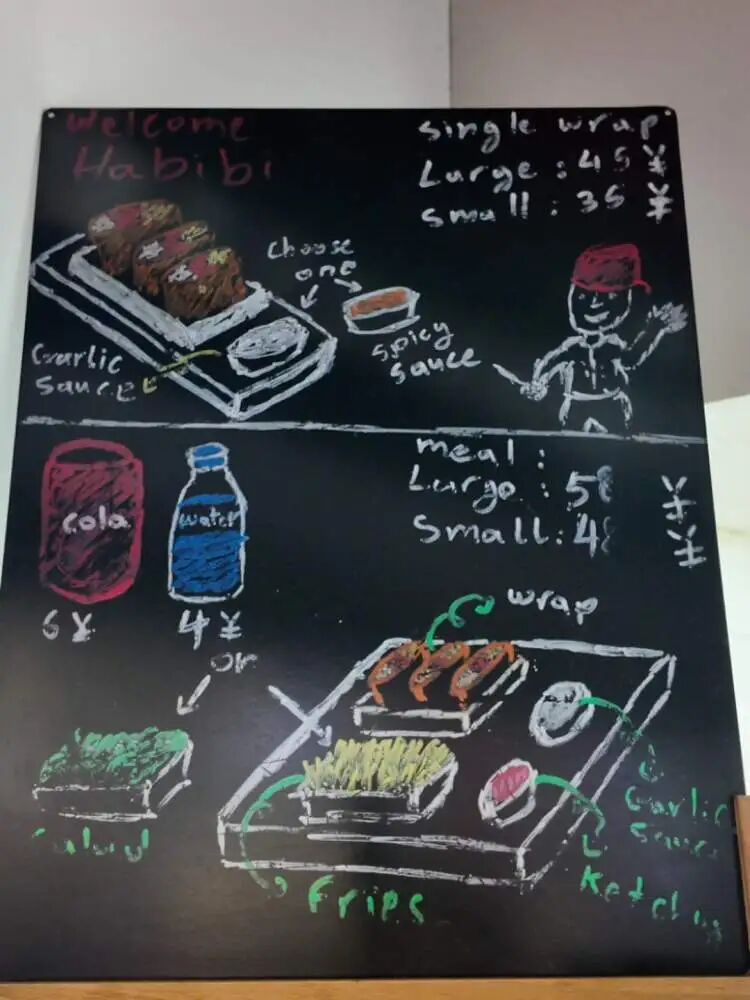 Welcome
Habibi
single wrap
Large : 45 ¥
small : 35 ¥
choose
one
Garlic
sauce
spicy
sauce
meal :
Large : 58 ¥
Small : 48 ¥
cola
water
6 ¥
4 ¥
or
wrap
Salad
Garlic
sauce
Ketchup
fries